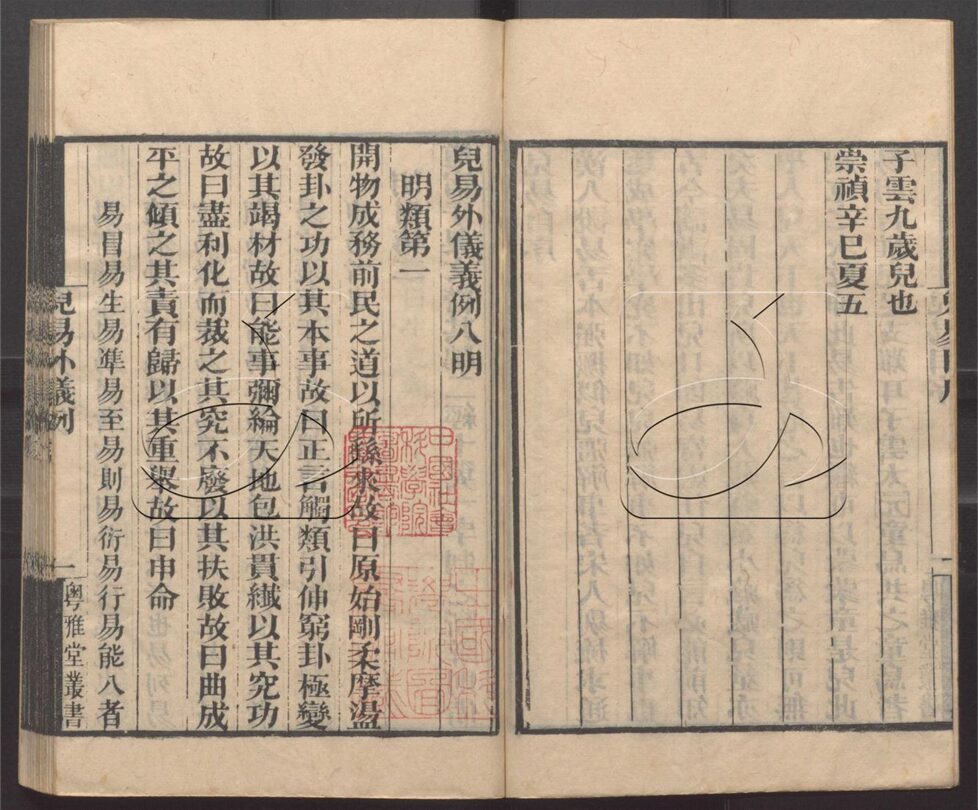 子雲九歲兒也
崇禎辛巳夏五
兒易外儀義例八明
明類第一
開物成務前民之道以所繇來故曰原始剛柔摩盪
發卦之功以其本事故曰正言觸類引伸窮卦極變
以其竭材故曰能事彌綸天地包洪貫纖以其究功
故曰盡利化而裁之其究不廢以其扶敗故曰曲成
平之傾之其責有歸以其重舉故曰申命
易冒易生易準易至易則易衍易行易能八者
兒易外儀例
一
粵雅堂叢書